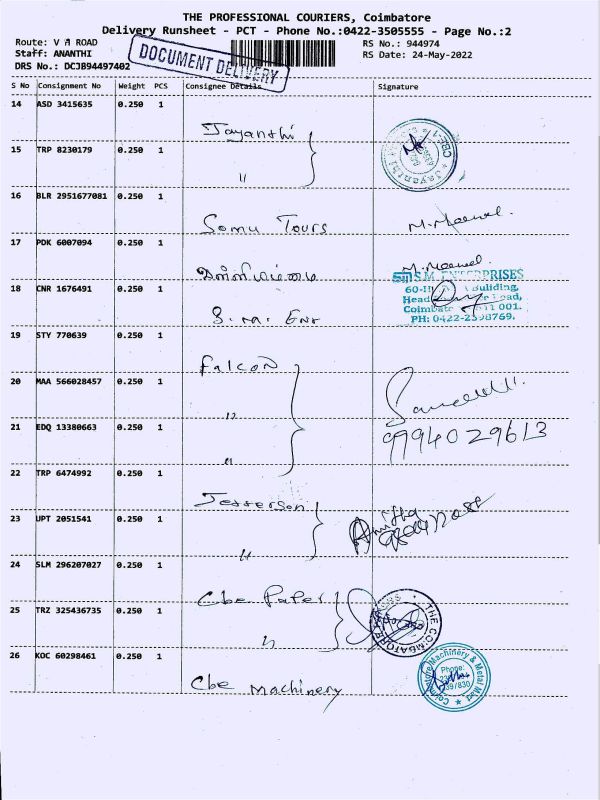 THE PROFESSIONAL COURIERS, Coimbatore
Delivery Runsheet - PCT - Phone No.:0422-3505555 - Page No.:2
Route: V H ROAD
RS No.: 944974
Staff: ANANTHI
RS Date: 24-May-2022
DRS No.: DCJB94497402
DOCUMENT DELIVERY
S No Consignment No Weight PCS Consignee Details Signature
14 ASD 3415635 0.250 1 Jayanthi
15 TRP 8230179 0.250 1 "
16 BLR 2951677081 0.250 1 Somu Tours
17 PDK 6007094 0.250 1
18 CNR 1676491 0.250 1 S.M. Enr
SM ENTERPRISES
Coimbatore
PH: 0422-
19 STY 770639 0.250 1 Falcon
20 MAA 566028457 0.250 1 "
21 EDQ 13380663 0.250 1 "
9994029613
22 TRP 6474992 0.250 1 Jefferson
23 UPT 2051541 0.250 1 "
Anitha
24 SLM 296207027 0.250 1 Cbe Paper
25 TRZ 325436735 0.250 1 "
THE COIMBATORE
26 KOC 60298461 0.250 1 Cbe Machinery
Coimbatore Machinery & Metal Mart
Phone: